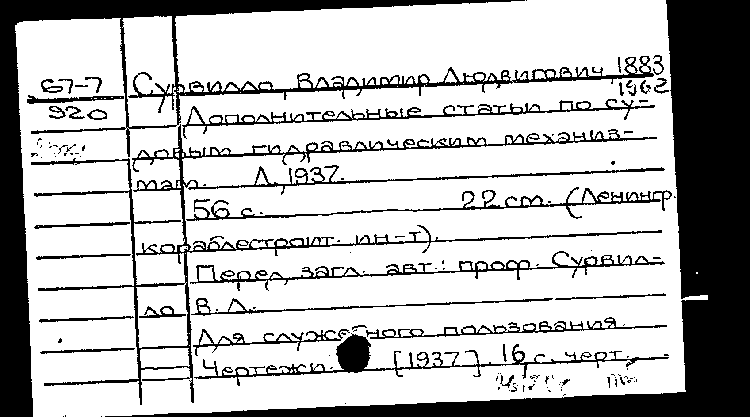 67-7 Сурвилло, Владимир Людвигович 1883
1962
920 Дополнительные статьи по су-
довым гидравлическим механиз-
мам. Л., 1937.
56 с. 22 см. (Ленингр.
кораблестроит. ин-т).
Перед загл. авт.: проф. Сурвил-
ло В. Л.
Для служебного пользования.
Чертежи. [1937] 16 с. черт.